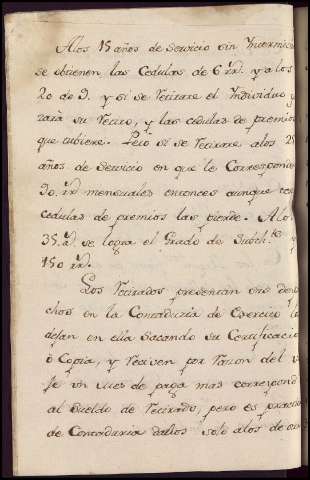 Alos 15 años de Servicio sin Intermici
se obtienen las Cedulas de 6 rr.ˢ y a los
20 de 9. y si se Retirare el Individuo
rará su Retiro, y las cedulas de premio
que tubiere. Pero si se Retirare alos 25
años de Servicio en que le Corresponde
90. rr.ˢ mensuales entonces aunque
cedulas de premios las pierde. Alo
35. a.ˢ se logra el Grado de Subth.ᵗᵉ y
150 rr.ˢ
Los Retirados presentan sus
chos en la Contaduria de Exercito
dejan en ella Sacando su Certificacio
o Copia, y Reciven por razon del
fe un mes de paga mas correspond
al Sueldo de Retirado, pero es
de Contaduria dalos solo alos de